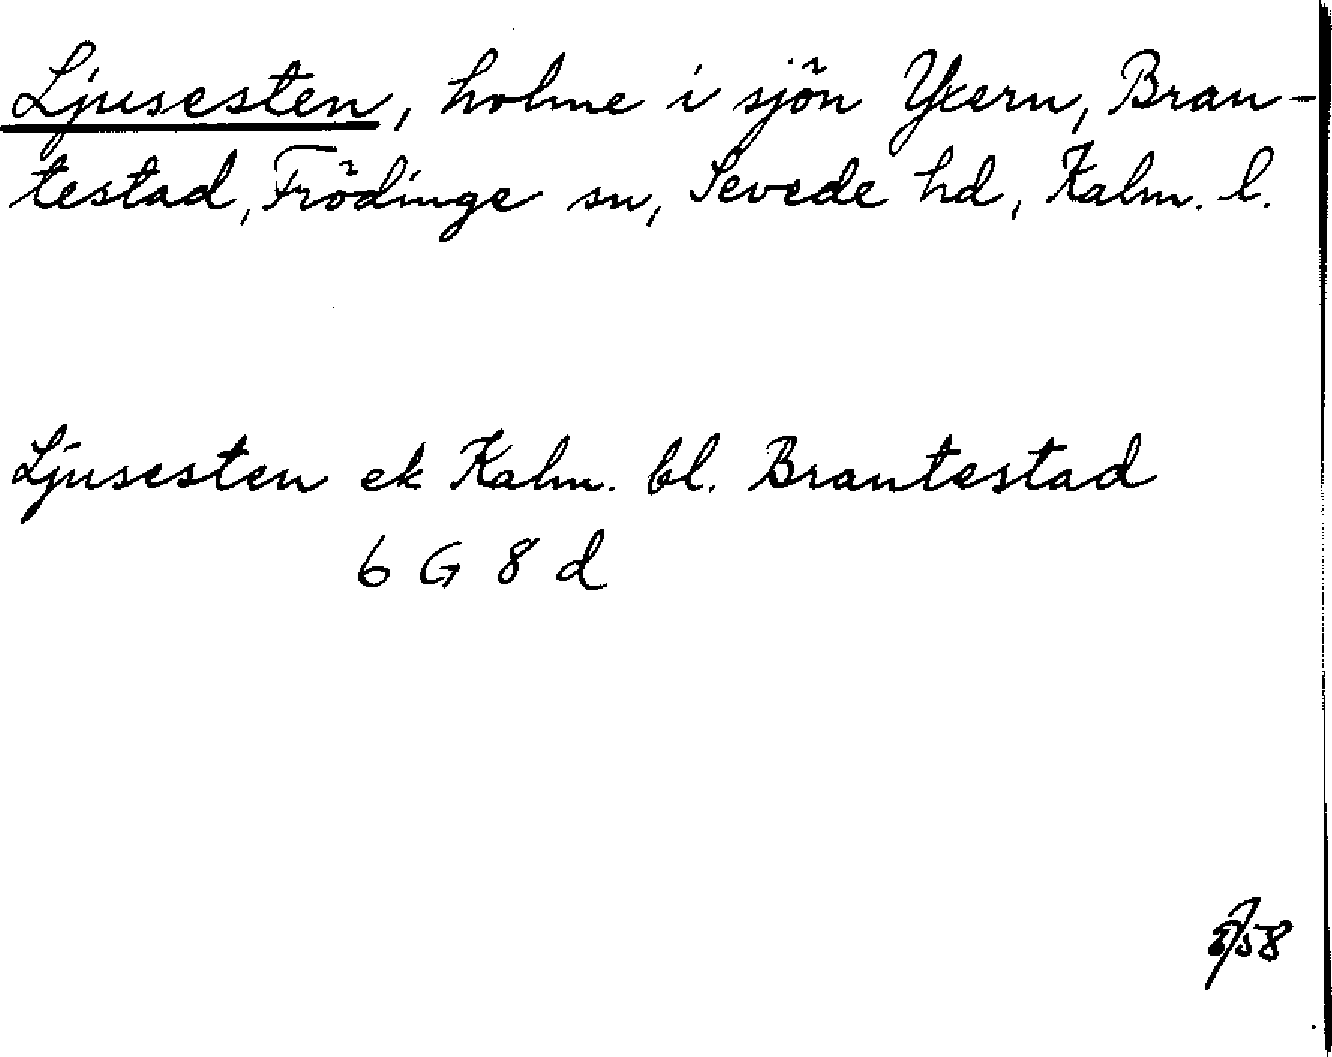 Ljusesten, holme i sjön Ykern, Bran-
testad, Frödinge sn, Sevede hd, Kalm. l.
Ljusesten ek Kalm. bl. Brantestad
6 G 8 d